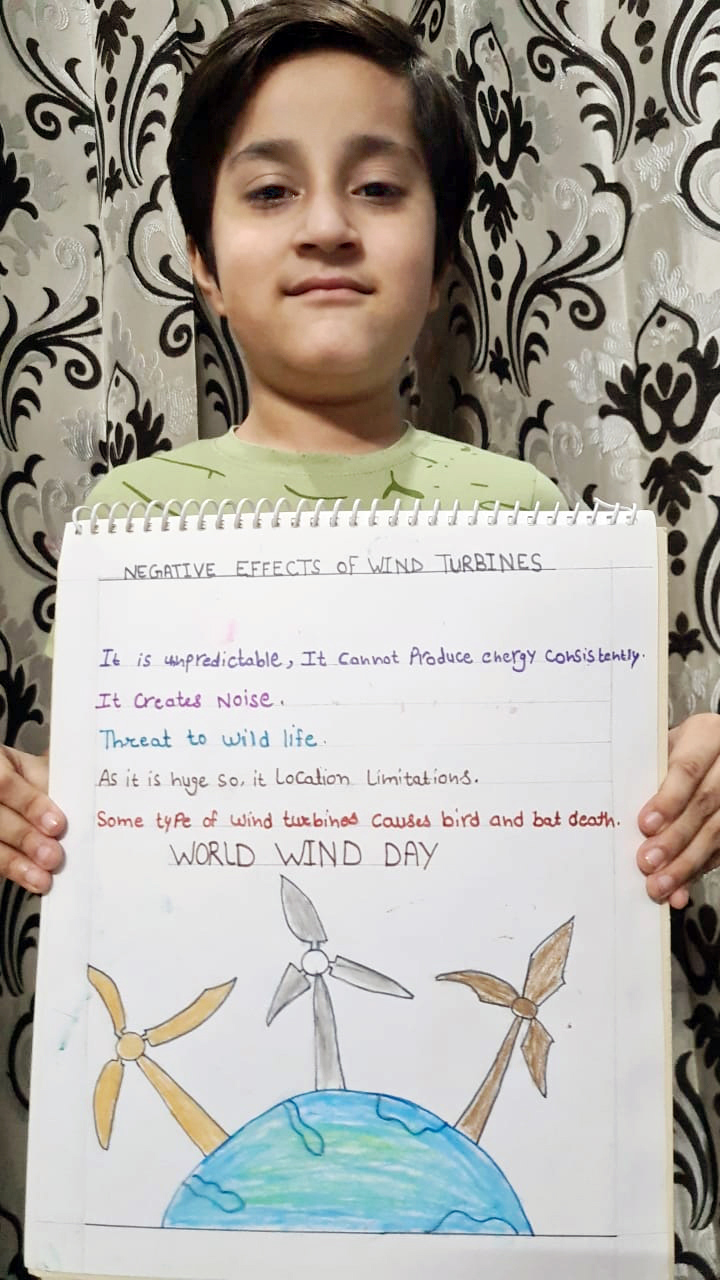 NEGATIVE EFFECTS OF WIND TURBINES
It is unpredictable, It Cannot Produce energy Consistently.
It Creates Noise.
Threat to wild life.
As it is huge so, it Location Limitations.
Some type of wind turbines Causes bird and bat death.
WORLD WIND DAY